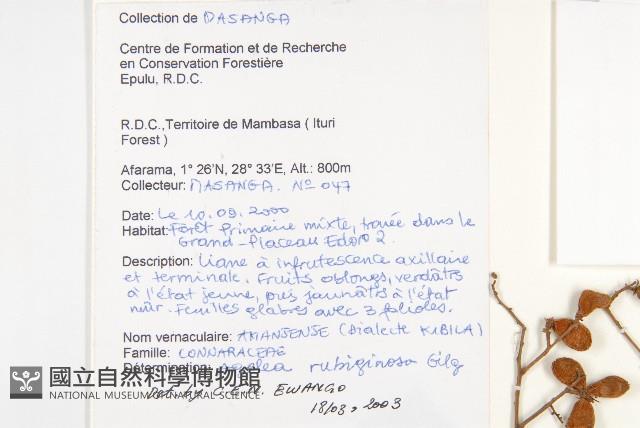 Collection de MASANGA
Centre de Formation et de Recherche
en Conservation Forestière
Epulu, R.D.C.
R.D.C.,Territoire de Mambasa ( Ituri
Forest )
Afarama, 1° 26'N, 28° 33'E, Alt.: 800m
Collecteur: MASANGA. Nº 047
Date: Le 10.09.2000
Habitat: Forêt primaire mixte, trouée dans le
Grand-Placeau Edoro 2.
Description: Liane à infrutescence axillaire
et terminale. Fruits oblongs, verdâtres
à l'état jeune, puis jaunâtres à l'état
mûr. Feuilles glabres avec 3 folioles.
Nom vernaculaire: AMANJENSE (Dialecte KIBILA)
Famille: CONNARACEAE
Détermination: Agelaea rubiginosa Gilg
國立自然科學博物館
NATIONAL MUSEUM OF NATURAL SCIENCE
Det. by C.E.N. EWANGO
18/03/2003